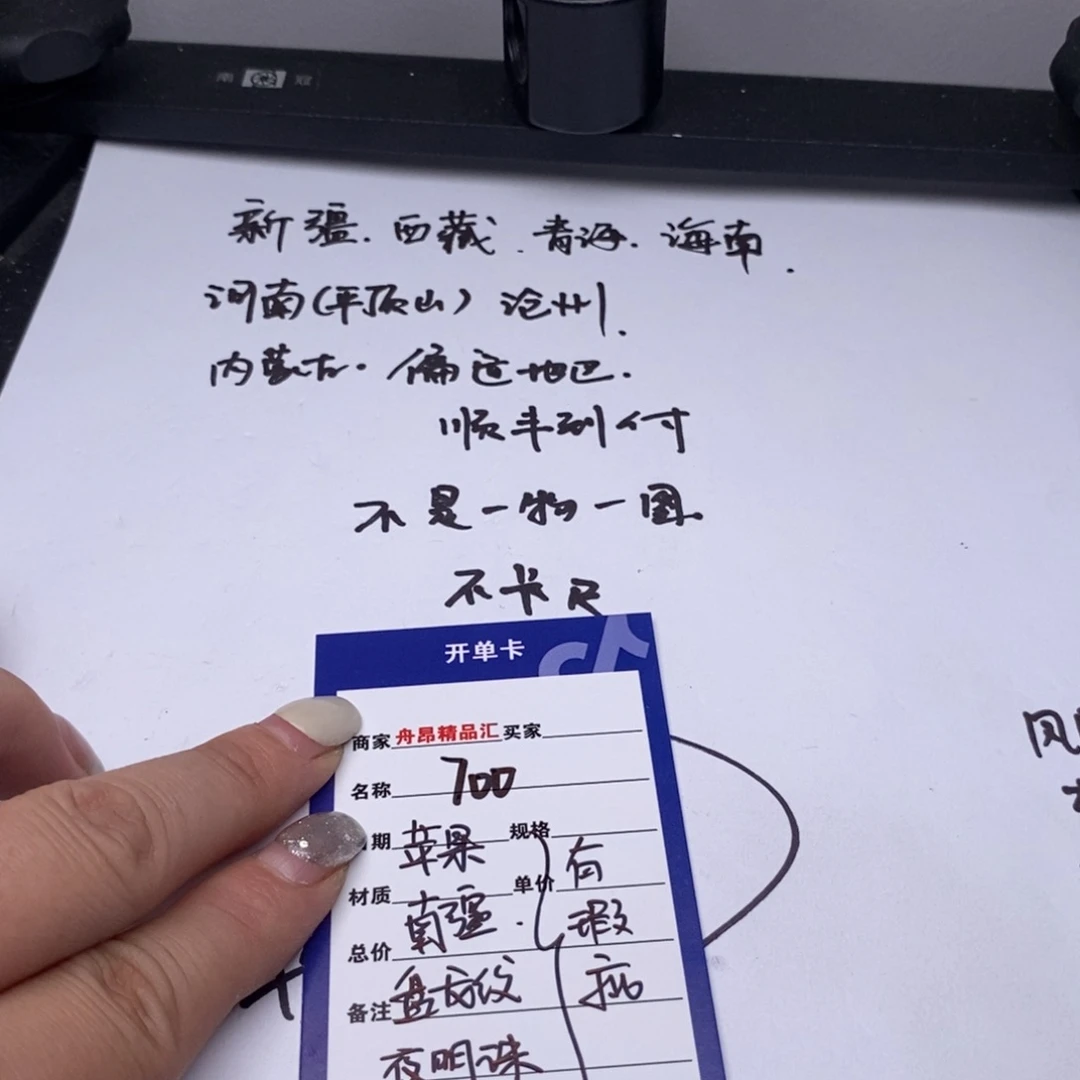 南 冠
新疆.西藏.青海.海南.
河南(平顶山)沧州.
内蒙古.偏远地区.
顺丰到付
不是一物一图.
不卡尺
开单卡
商家 舟昂精品汇 买家
名称 700
期 苹果 规格
材质 南疆. 单价 有
总价 瑕
备注 盘龙纹 疵
夜明珠
风